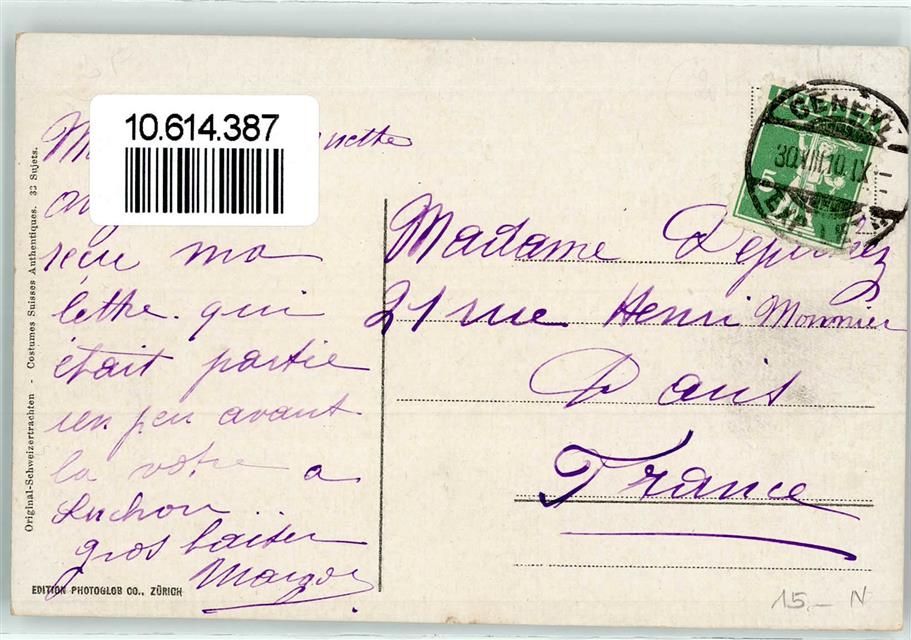 10.614.387
reçu ma
lettre. qui
était partie
un peu avant
la votre a
Luchon...
gros baiser
Margot
Madame
21 rue Henri Monnier
Paris
France
5
30.VIII.10.IX
Original-Schweizertrachten - Costumes Suisses Authentiques. 32 Sujets.
EDITION PHOTOGLOB CO., ZÜRICH
15.- N